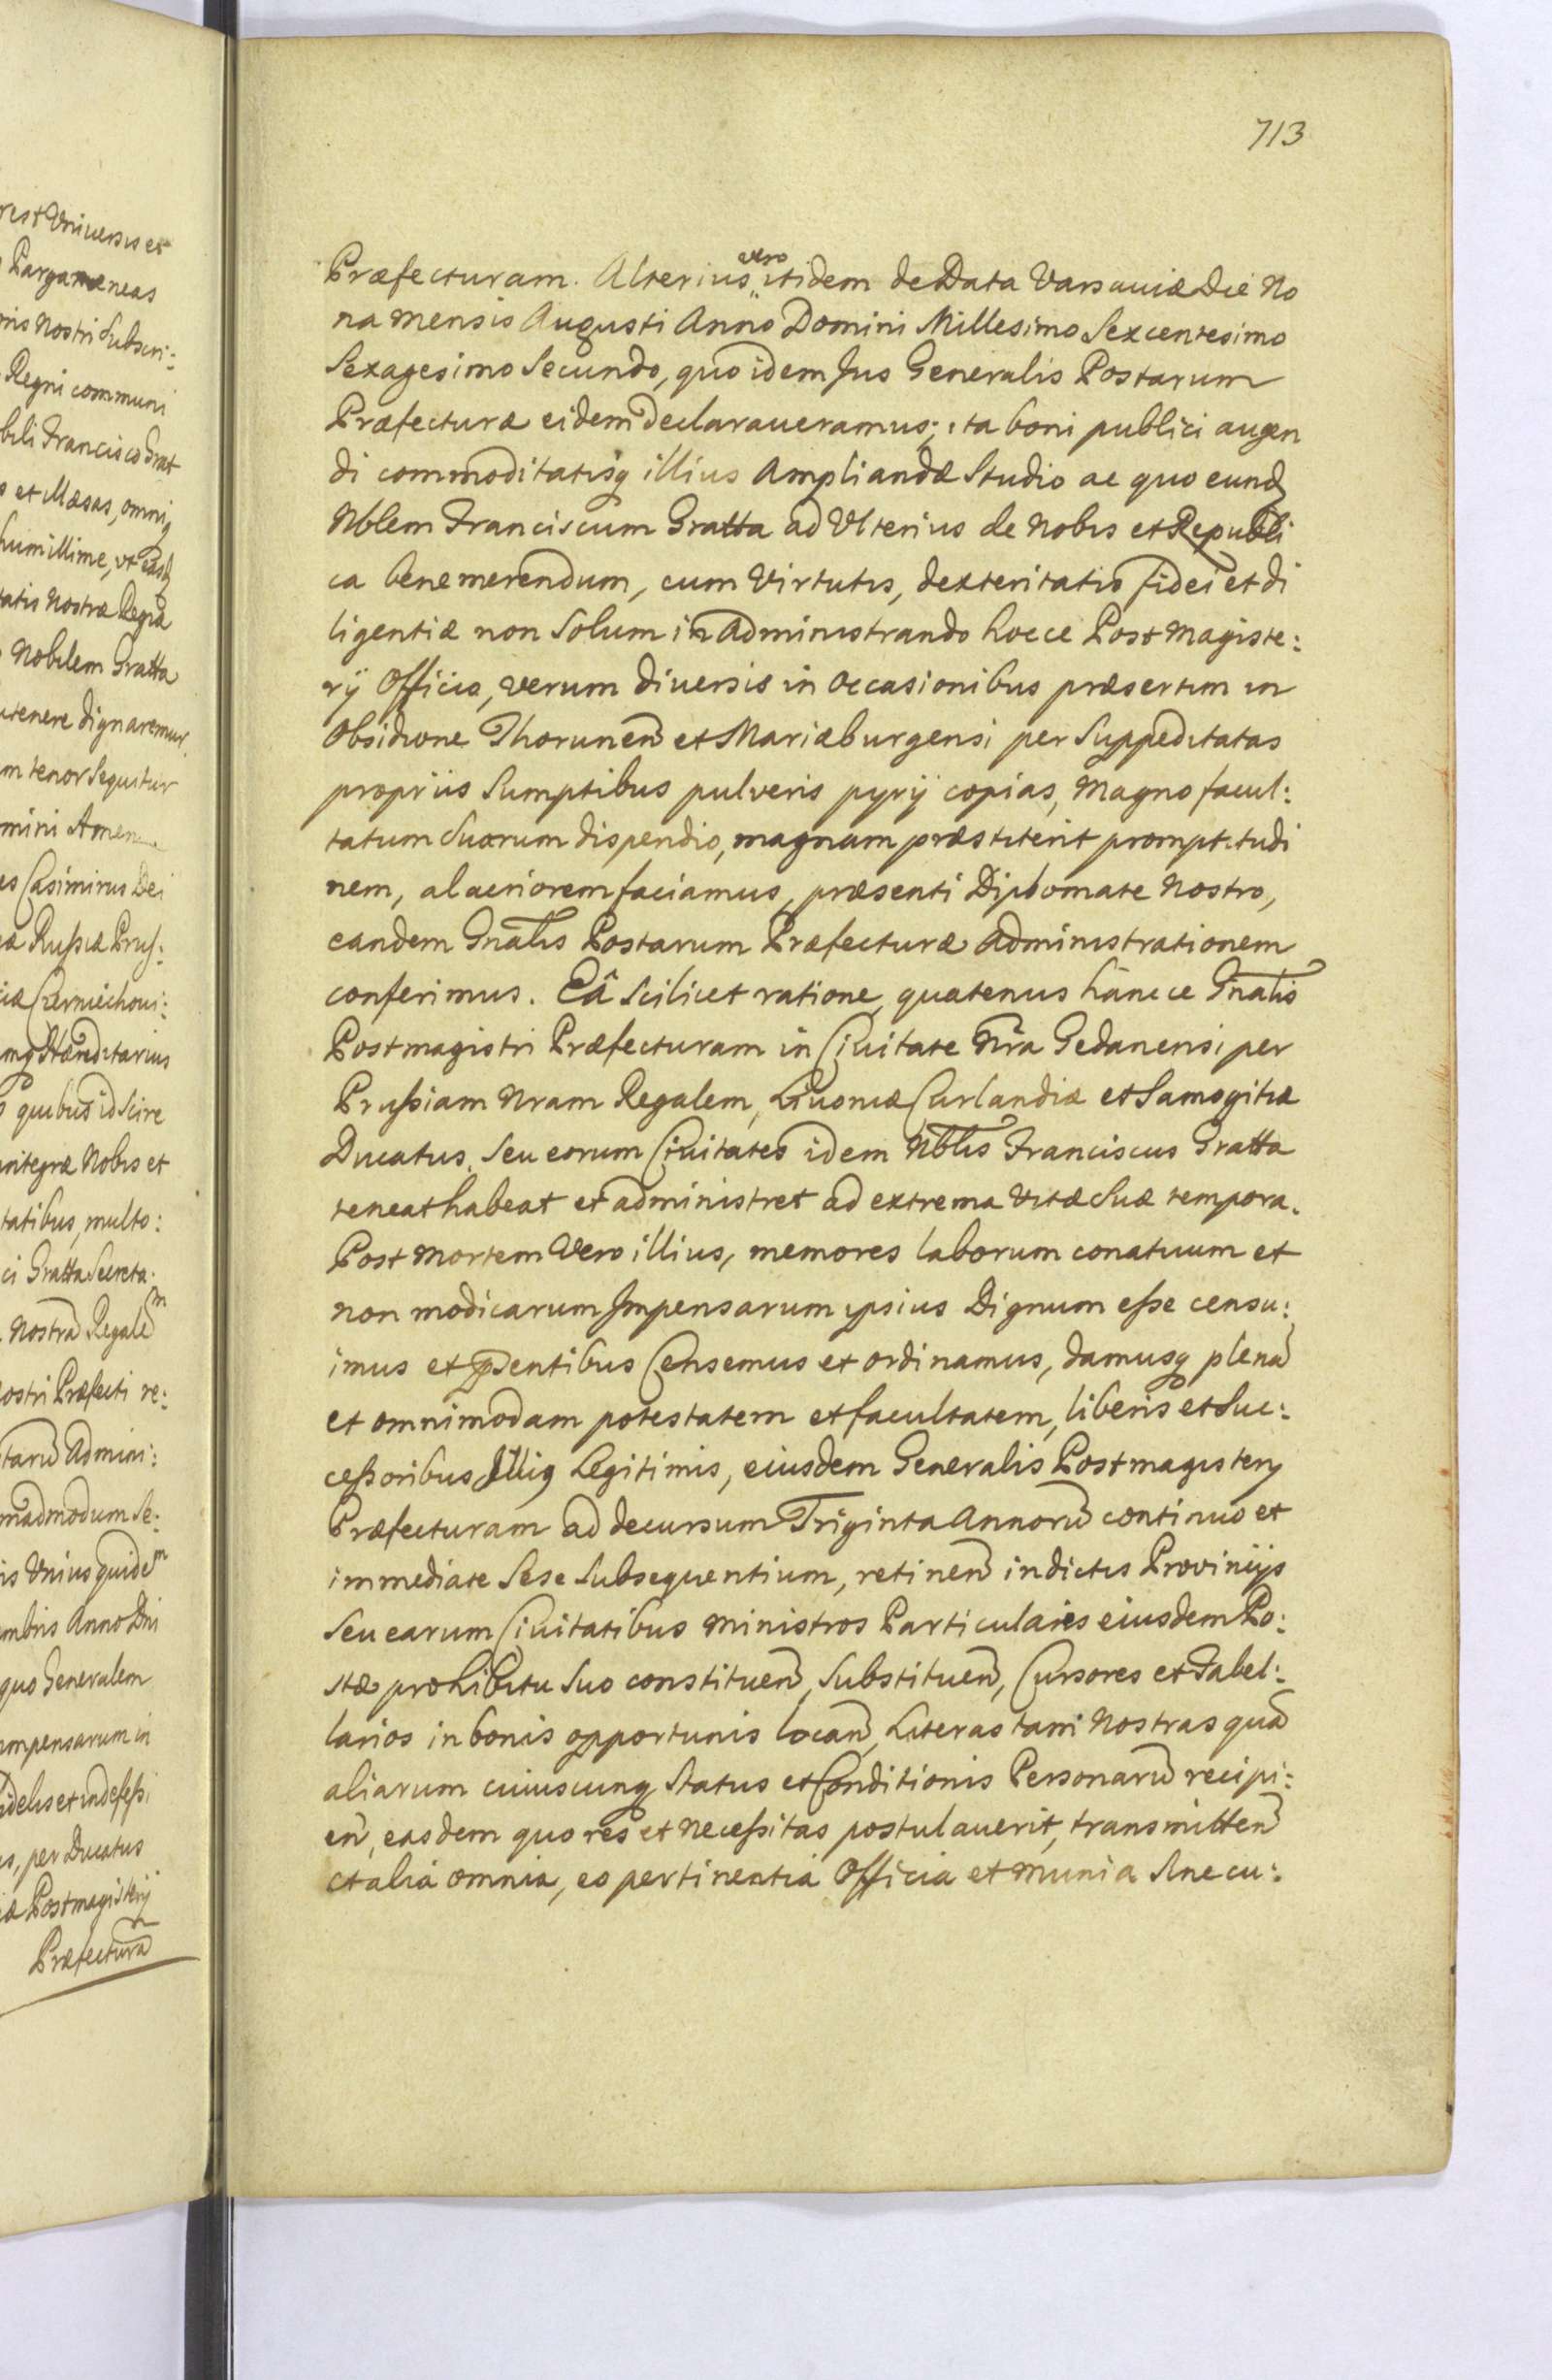 rest Vniuersis et
Pargameneas
nis Nostri Subscri:
Regni communi
bili Francisco Grat
et Mæsas, omniq
humillime, vt easdq
tatis Nostræ Regiæ
Nobilem Gratta
tenere dignaremur.
m tenor sequitur
mini Amen.
es Casimirus Dei
æ Russiæ Prus:
iæ Czerniechoui:
mq Hæreditarius
quibus id scire
integræ Nobis et
tatibus, multo:
ci Gratta Secreta:
Nostrã Regalem
ostri Præfecti re:
tarũ Admini:
madmodum se:
is Vnius quidem
mbris Anno Dni
quo Generalem
mpensarum in
fidelis et indefessi
s, per Ducatus
iæ Postmagisterij
Præfecturã
713
Præfecturam. Alterius vero itidem de Data Varsauiæ Die No
na mensis Augusti Anno Domini Millesimo Sexcentesimo
Sexagesimo Secundo, quo idem Jus Generalis Postarum
Præfecturæ eidem declaraueramus; ita boni publici augen
di commoditatisq illius Ampliandæ Studio ac quo eundq
Nblem Franciscum Gratta ad Vlterius de Nobis et Republi
ca benemerendum, cum Virtutis, dexteritatis fidei et di
ligentiæ non solum in Administrando hocce Postmagiste:
rij Officio, verum diuersis in occasionibus præsertim in
Obsidione Thorunen̄ et Mariæburgensi per Suppeditatas
propriis Sumptibus pulveris pyrij copias, Magno facul:
tatum Suorum dispendio, magnam præstiterit promptitudi
nem, alacriorem faciamus, præsenti Diplomate Nostro,
eandem Gnalis Postarum Præfecturæ Administrationem
conferimus. Eâ scilicet ratione, quatenus hancce Gnalis
Postmagistri Præfecturam in Ciuitate Nra Gedanensi per
Prussiam Nram Regalem, Liuoniæ Curlandiæ et Samogitiæ
Ducatus, seu eorum Ciuitates idem Nblis Franciscus Gratta
teneat habeat et administret ad extrema Vitæ Suæ tempora.
Post mortem Vero illius, memores laborum conatuum et
non modicarum Impensarum ipsius Dignum esse censu:
imus et pñsentibus Censemus et ordinamus, damusq plenã
et omnimodam potestatem et facultatem, liberis et Suc:
cessoribus Illiq Legitimis, eiusdem Generalis Postmagisterij
Præfecturam ad decursum Triginta Annorũ continuo et
immediate sese subsequentium, retinen̄ in dictis Provincijs
seu earum Ciuitatibus Ministros Particulares eiusdem Po:
stæ pro hibitu Suo constituen̄, Substituen̄, Cursores et Tabel:
larios in bonis opportunis locan̄, Literas tam Nostras quã
aliarum cuiuscunq Status et Conditionis Personarũ recipi:
en̄, easdem quo res et necessitas postulauerit, transmitten̄
et alia omnia, eo pertinentia Officia et Munia sine cu: